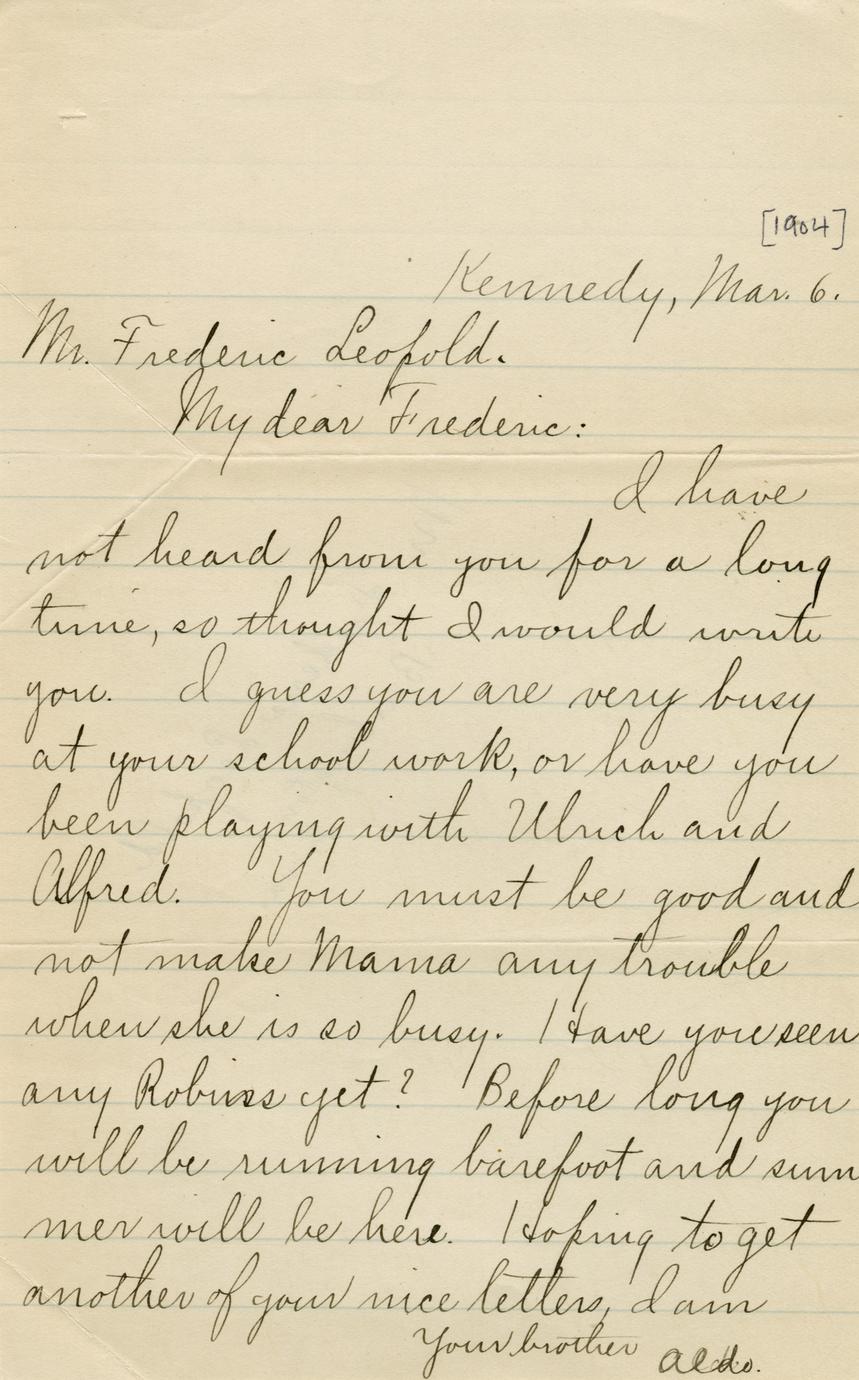 [1904]
Kennedy, Mar. 6.
Mr. Frederic Leopold.
My dear Frederic:
I have
not heard from you for a long
time, so thought I would write
you. I guess you are very busy
at your school work, or have you
been playing with Ulrich and
Alfred. You must be good and
not make Mama any trouble
when she is so busy. Have you seen
any Robins yet? Before long you
will be running barefoot and sum
mer will be here. Hoping to get
another of your nice letters, I am
Your brother Aldo.